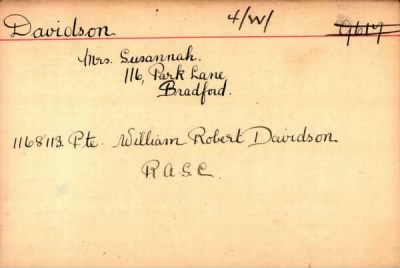 Davidson 4/W/ 9617
Mrs. Susannah.
116, Park Lane
Bradford.
1168113 Pte. William Robert Davidson
R.A.S.C.